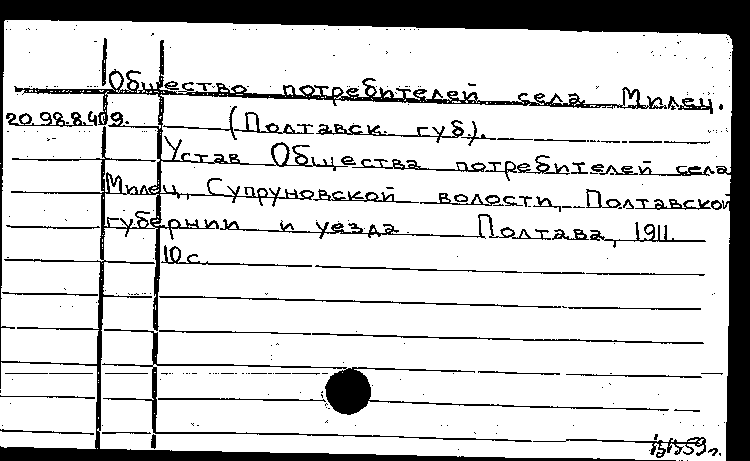 Общество потребителей села Милец.
20.98.8.409. (Полтавск. губ.).
Устав Общества потребителей села
Милец, Супруновской волости, Полтавской
губернии и уезда Полтава, 1911.
10 с.